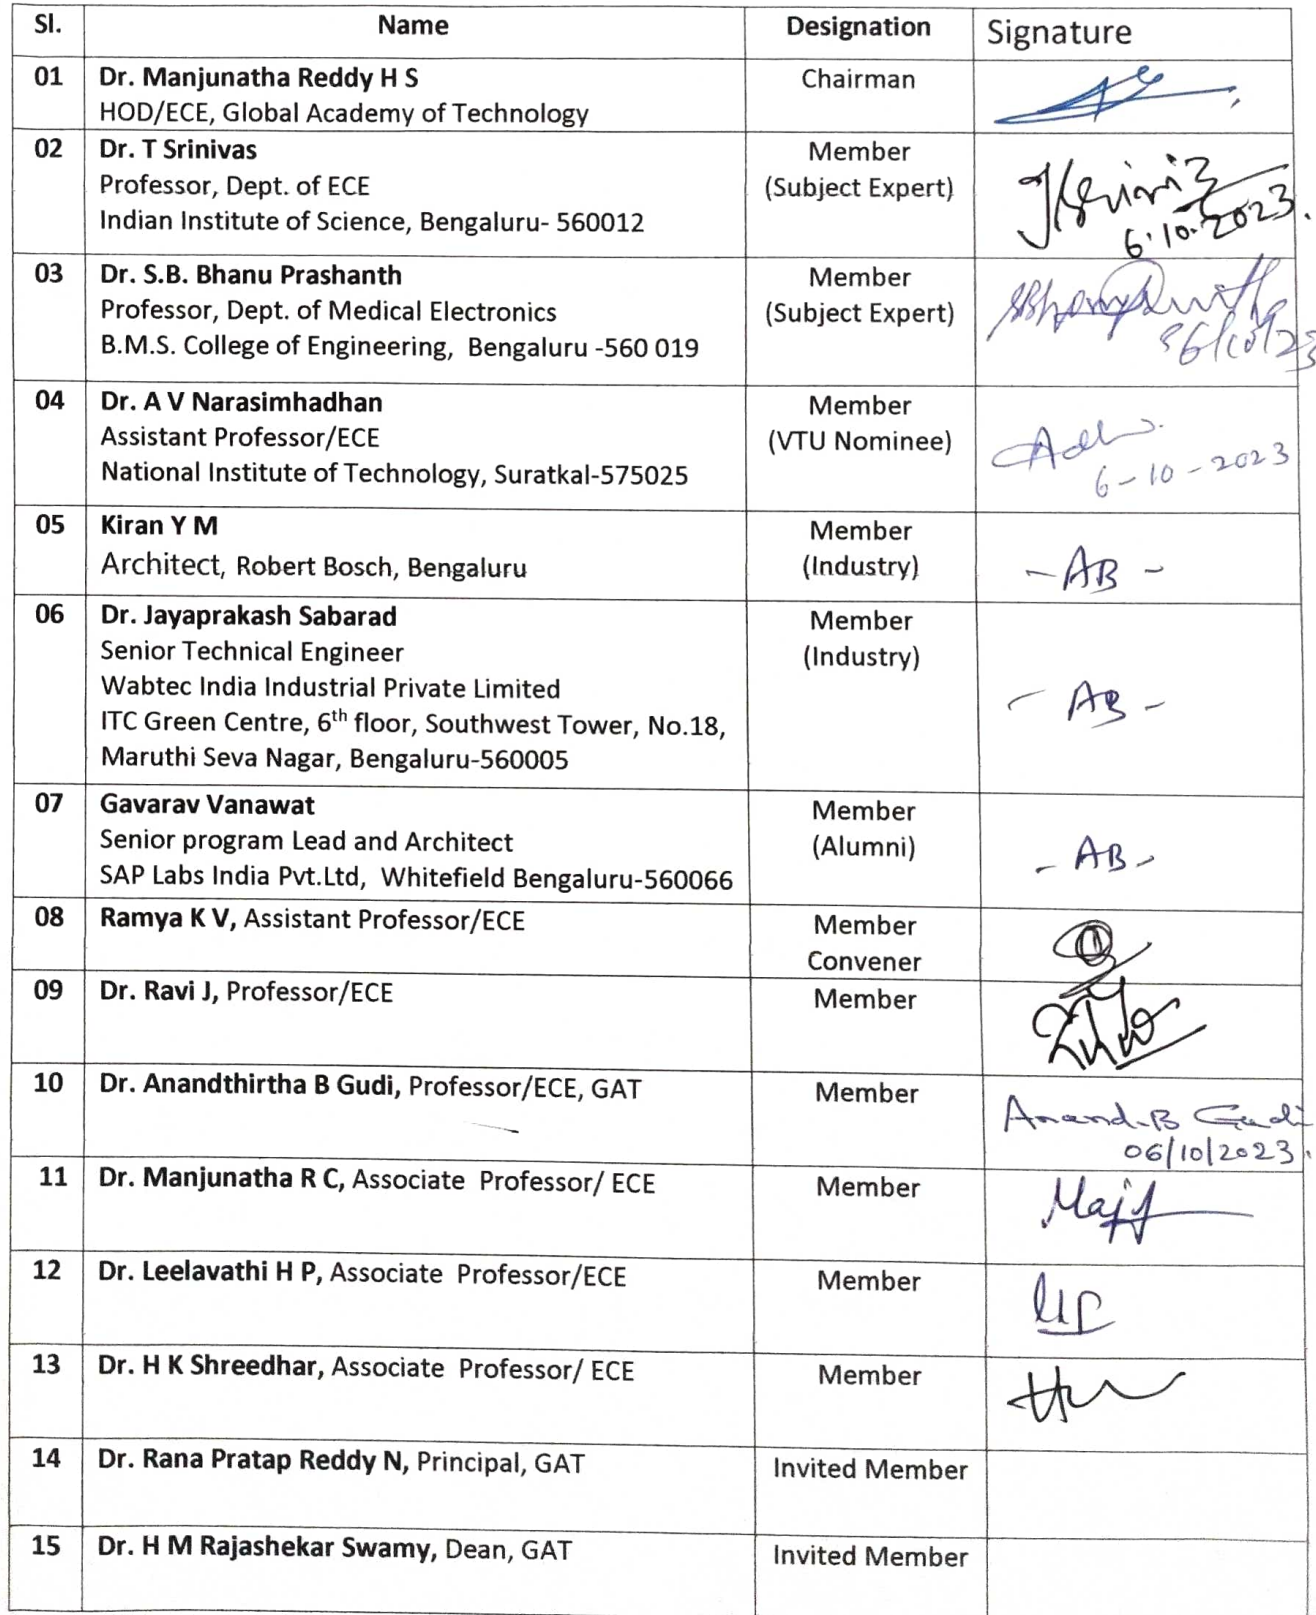 Sl. Name Designation Signature
01 Dr. Manjunatha Reddy H S Chairman
HOD/ECE, Global Academy of Technology
02 Dr. T Srinivas Member
Professor, Dept. of ECE (Subject Expert)
Indian Institute of Science, Bengaluru- 560012
6.10.2023.
03 Dr. S.B. Bhanu Prashanth Member
Professor, Dept. of Medical Electronics (Subject Expert)
B.M.S. College of Engineering, Bengaluru -560 019
04 Dr. A V Narasimhadhan Member
Assistant Professor/ECE (VTU Nominee)
National Institute of Technology, Suratkal-575025 6-10-2023
05 Kiran Y M Member
Architect, Robert Bosch, Bengaluru (Industry) - AB -
06 Dr. Jayaprakash Sabarad Member
Senior Technical Engineer (Industry)
Wabtec India Industrial Private Limited - AB -
ITC Green Centre, 6th floor, Southwest Tower, No.18,
Maruthi Seva Nagar, Bengaluru-560005
07 Gavarav Vanawat Member
Senior program Lead and Architect (Alumni) - AB -
SAP Labs India Pvt.Ltd, Whitefield Bengaluru-560066
08 Ramya K V, Assistant Professor/ECE Member
Convener
09 Dr. Ravi J, Professor/ECE Member
10 Dr. Anandthirtha B Gudi, Professor/ECE, GAT Member Anand.B Gudi
06/10/2023.
11 Dr. Manjunatha R C, Associate Professor/ ECE Member
12 Dr. Leelavathi H P, Associate Professor/ECE Member
13 Dr. H K Shreedhar, Associate Professor/ ECE Member
14 Dr. Rana Pratap Reddy N, Principal, GAT Invited Member
15 Dr. H M Rajashekar Swamy, Dean, GAT Invited Member